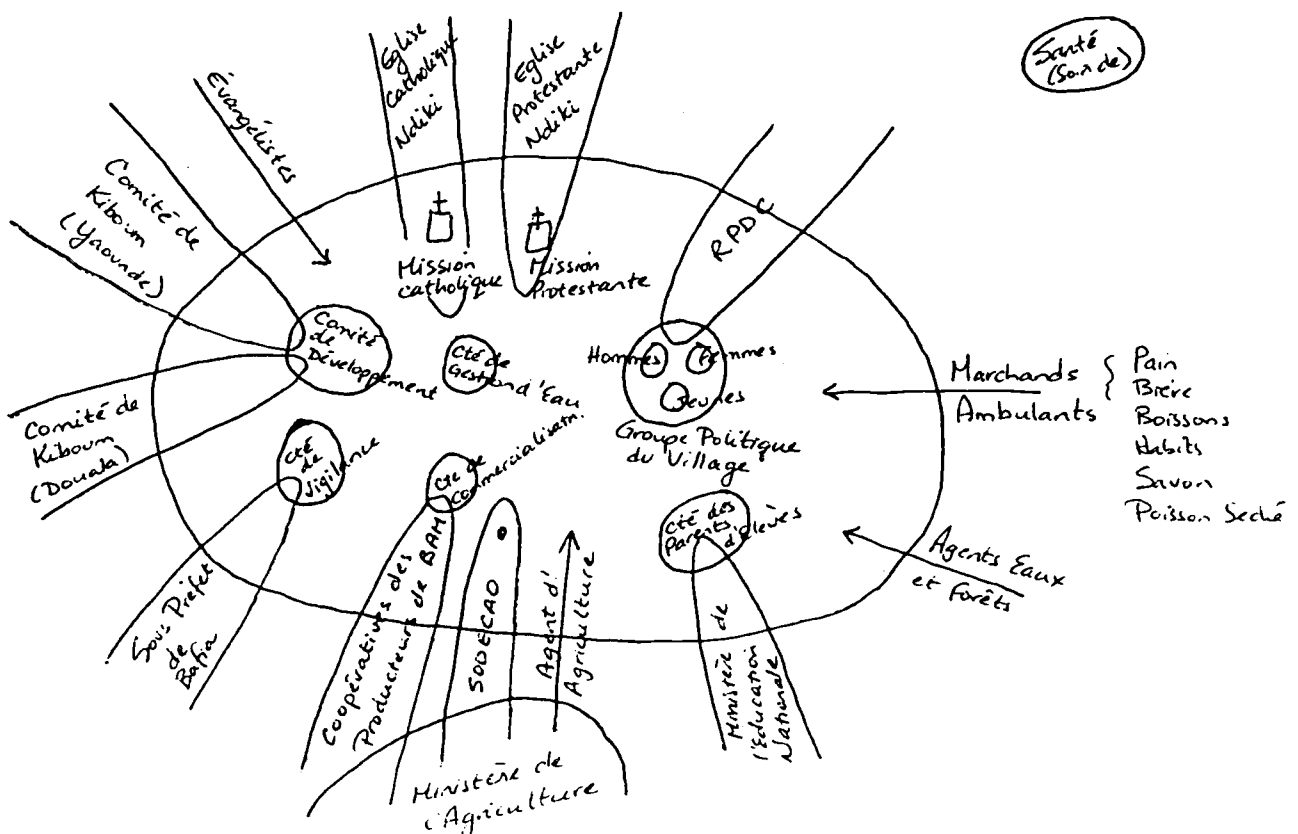 Santé
(Sainde)
Eglise
Catholique
Ndiki
Eglise
Protestante
Ndiki
Évangélistes
Comité de
Kiboum
(Yaounde)
RPDC
Mission
Catholique
Mission
Protestante
Comité
de
Développement
Cté de
Gestion d'Eau
Hommes
Femmes
Jeunes
Groupe Politique
du Village
Marchands
Ambulants
Pain
Bière
Boissons
Habits
Savon
Poisson Seché
Comité de
Kiboum
(Douala)
Cté
de
Vigilance
Cté de
Commercialisatn.
Cté des
Parents
d'Elèves
Agents Eaux
et Forêts
Sous Préfet
de
Bafia
Coopératives des
Producteurs de BAM
SODECAO
Agent d'
Agriculture
Ministère de
l'Education
Nationale
Ministère de
l'Agriculture